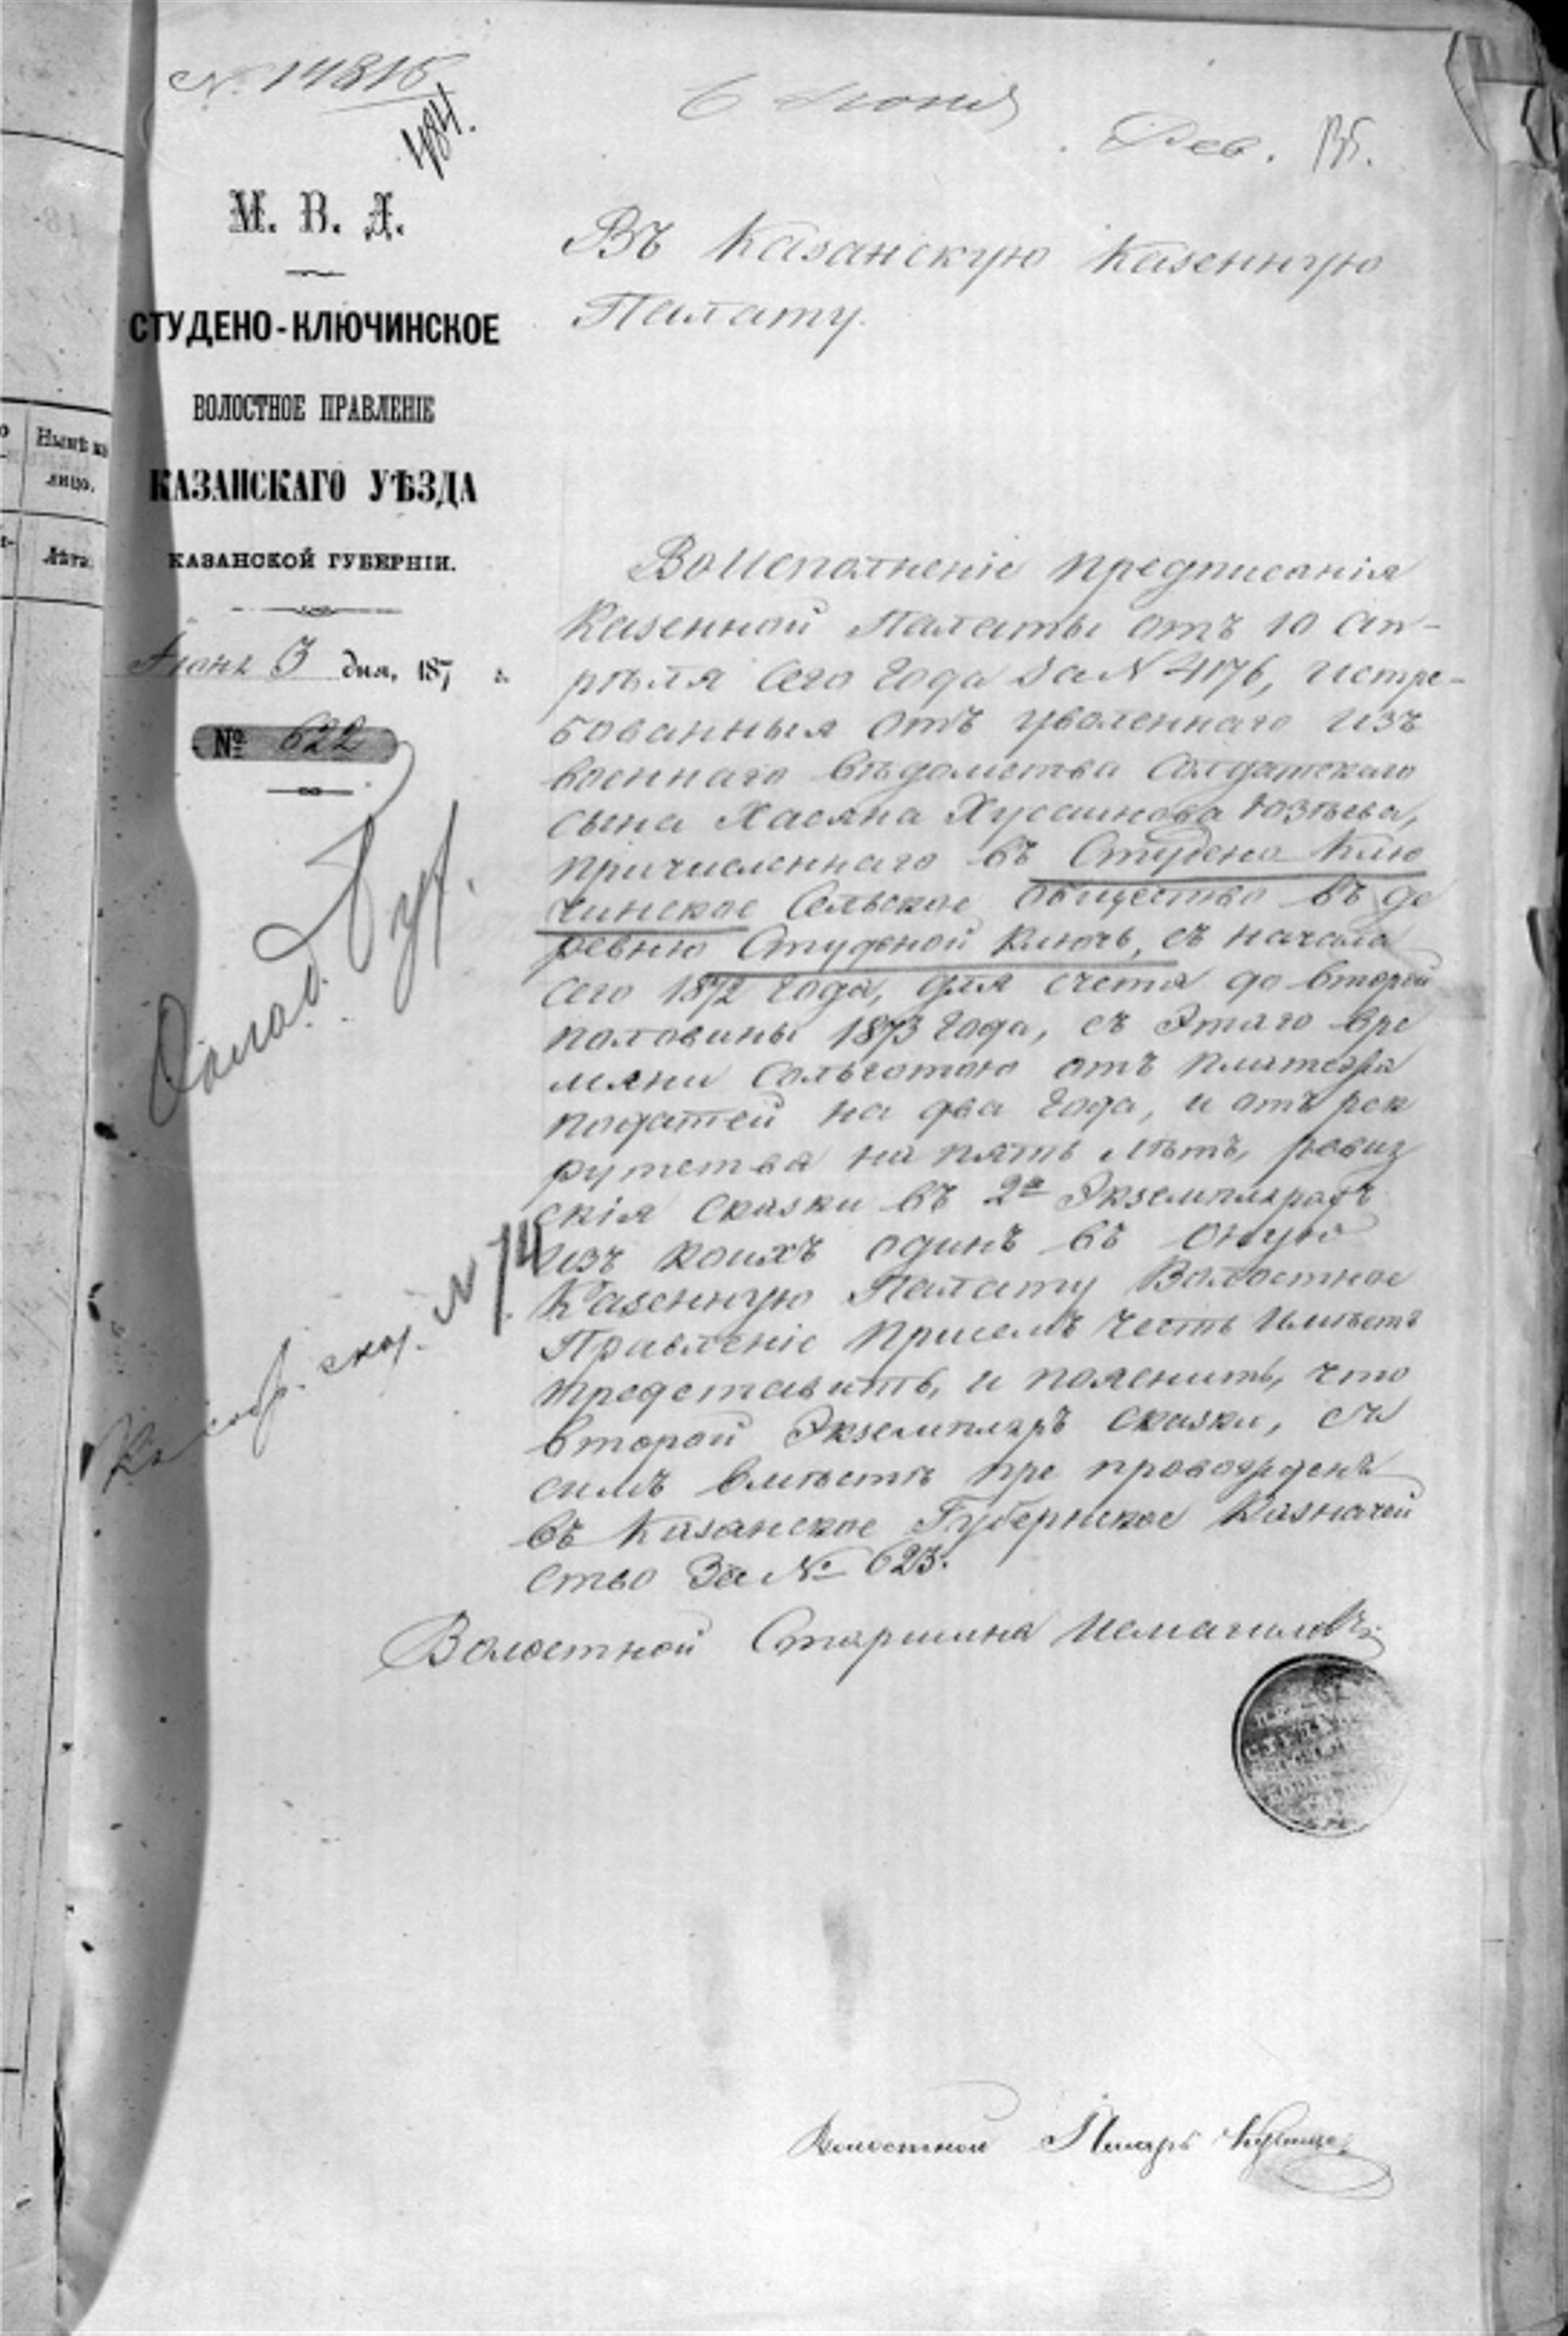 N. 14815
484.
6 Июня
Рев. 135.
М. В. Д.
СТУДЕНО-КЛЮЧИНСКОЕ
ВОЛОСТНОЕ ПРАВЛЕНІЕ
КАЗАНСКАГО УѢЗДА
КАЗАНСКОЙ ГУБЕРНІИ.
3 дня, 187 г.
№ 622
Въ Казанскую Казенную
Палату.
Воисполненіе предписанія
Казенной Палаты отъ 10 ап-
рѣля сего года за N 4176, истре-
бованныя отъ уволеннаго изъ
военнаго вѣдомства Солдатскаго
сына Хасяна Хусаинова Юзѣева,
причисленнаго въ Студено Клю
чинское Сельское общество въ де
ревню Студеной Ключь, съ начала
сего 1872 года, для счета до второй
половины 1873 года, съ этаго вре
мяни сольготою отъ платежа
податей на два года, и отъ рек
рутства на пять лѣтъ, ревиз
скія сказки въ 2х Экземплярахъ
изъ коихъ одинъ въ оную
Казенную Палату Волостное
Правленіе присемъ честь имѣетъ
представить, и пояснить, что
второй Экземпляръ сказки, съ
симъ вмѣстѣ пре провожденъ
въ Казанское Губернское Казначей
ство За № 623.
Волостной Старшина Исмагиловъ
N 74
Волостной Писарь
Нынѣ на
лицо.
Лѣта.